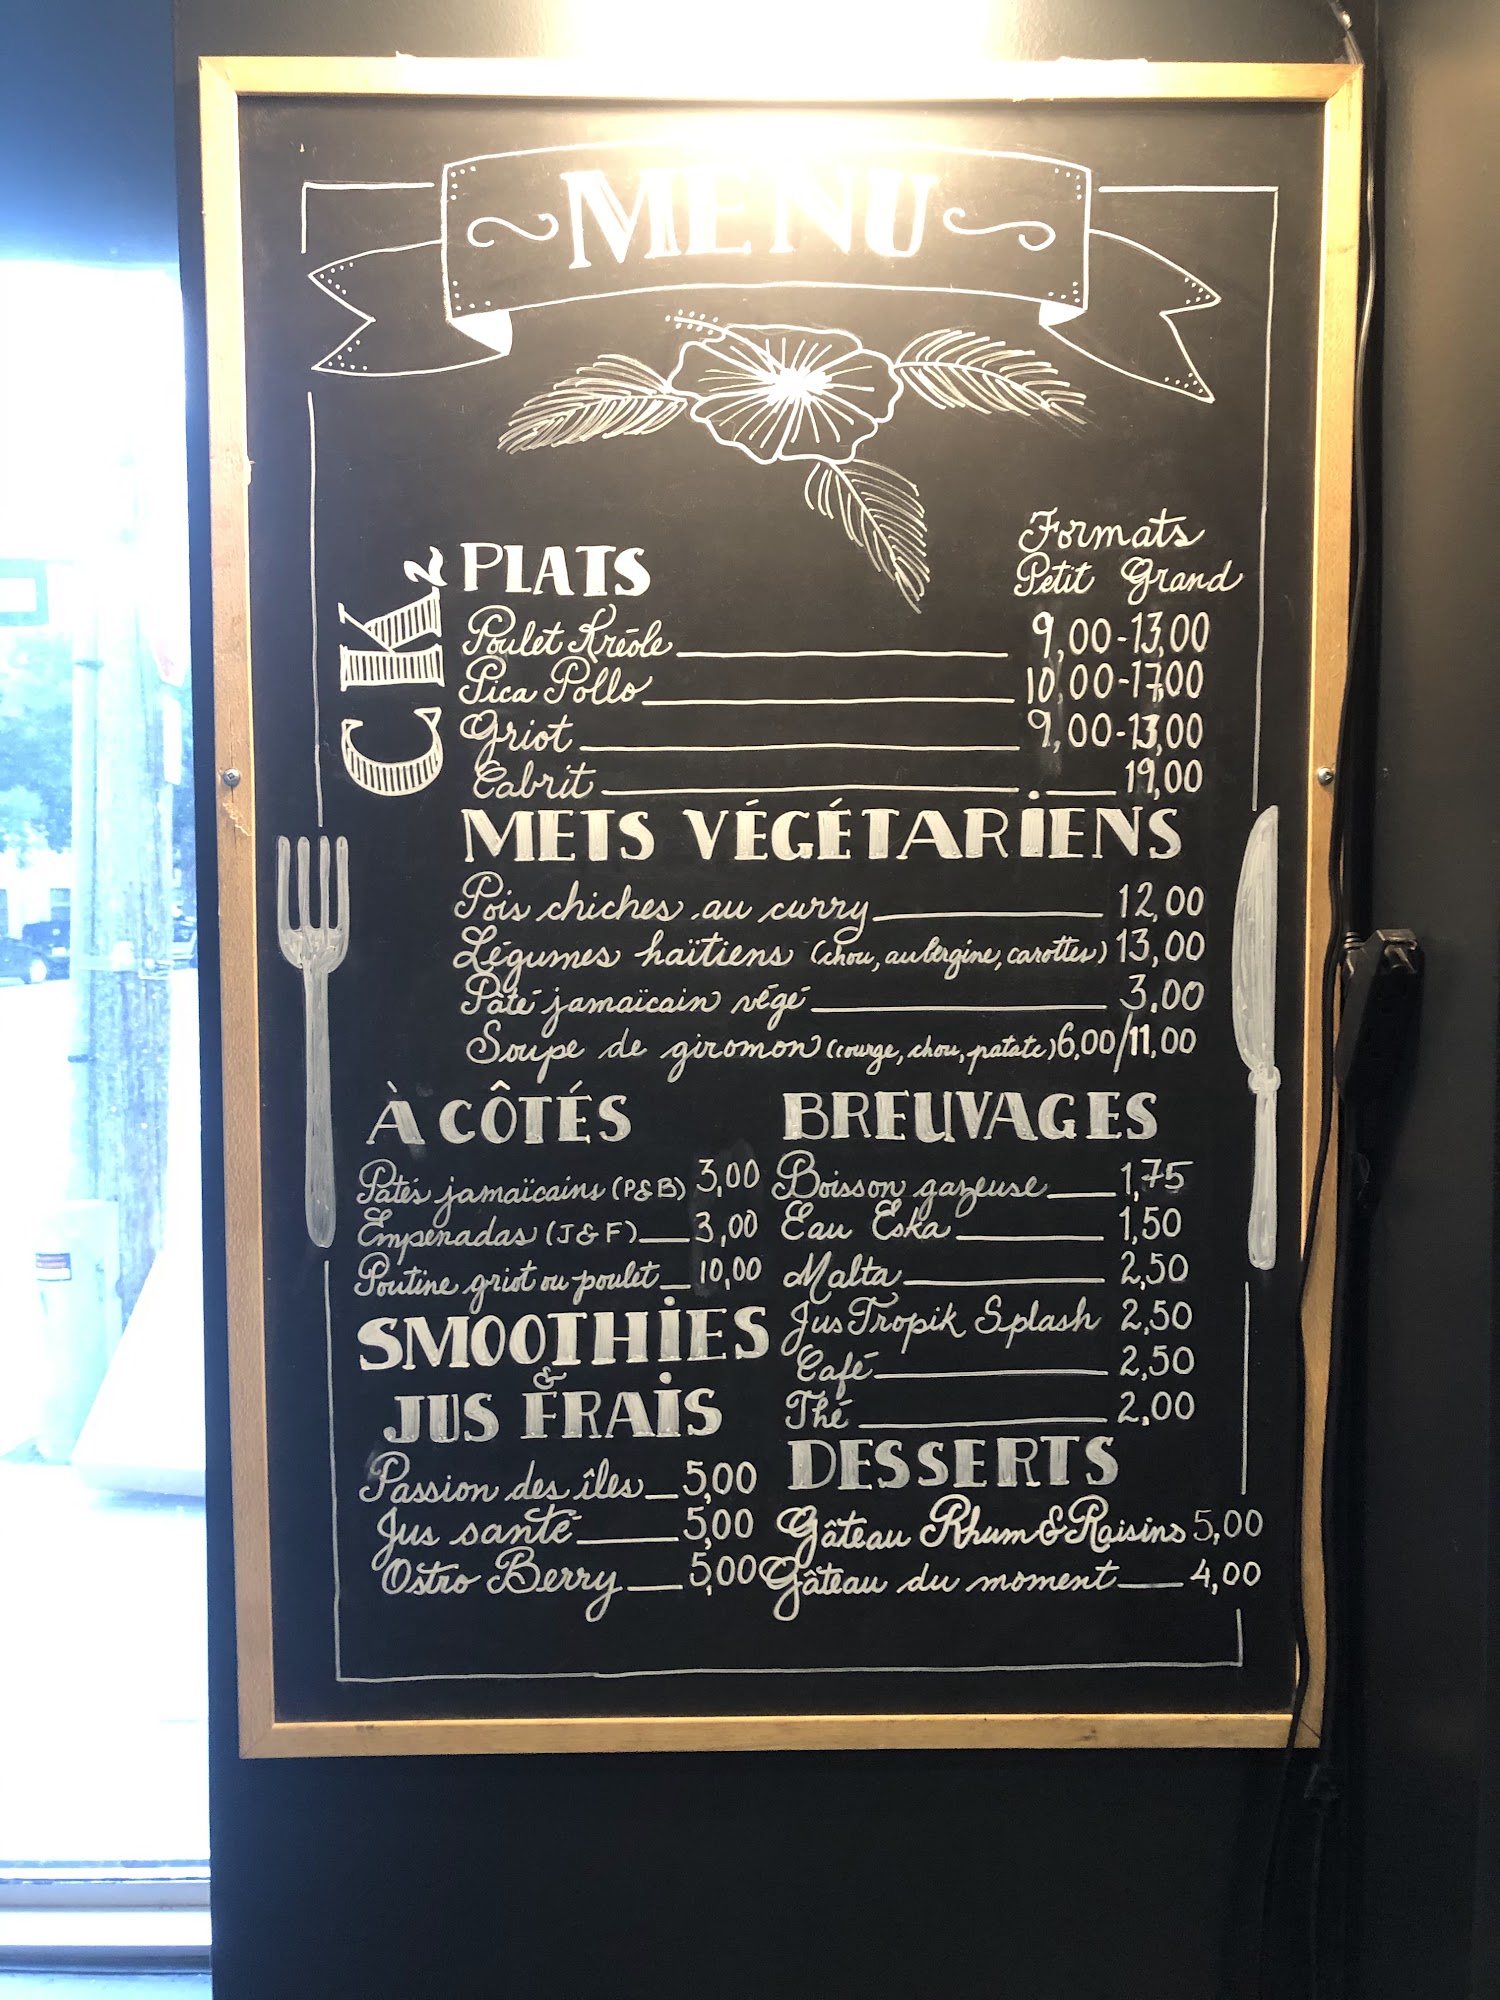 MENU
Formats
Petit Grand
CK2
PLATS
Poulet Kréole 9,00-13,00
Pica Pollo 10,00-17,00
Griot 9,00-13,00
Cabrit 19,00
METS VÉGÉTARIENS
Pois chiches au curry 12,00
Légumes haïtiens (chou, aubergine, carottes) 13,00
Pâté jamaïcain végé 3,00
Soupe de giromon (courge, chou, patate) 6,00/11,00
À CÔTÉS
Patés jamaïcains (P&B) 3,00
Empenadas (J&F) 3,00
Poutine griot ou poulet 10,00
SMOOTHIES
&
JUS FRAIS
Passion des îles 5,00
Jus santé 5,00
Ostro Berry 5,00
BREUVAGES
Boisson gazeuse 1,75
Eau Eska 1,50
Malta 2,50
Jus Tropik Splash 2,50
Café 2,50
Thé 2,00
DESSERTS
Gâteau Rhum & Raisins 5,00
Gâteau du moment 4,00